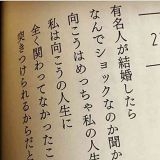 2
有名人が結婚したら
なんでショックなのか聞か
向こうはめっちゃ私の人生
私は向こうの人生に
全く関わってなかったこ
突きつけられるからだと